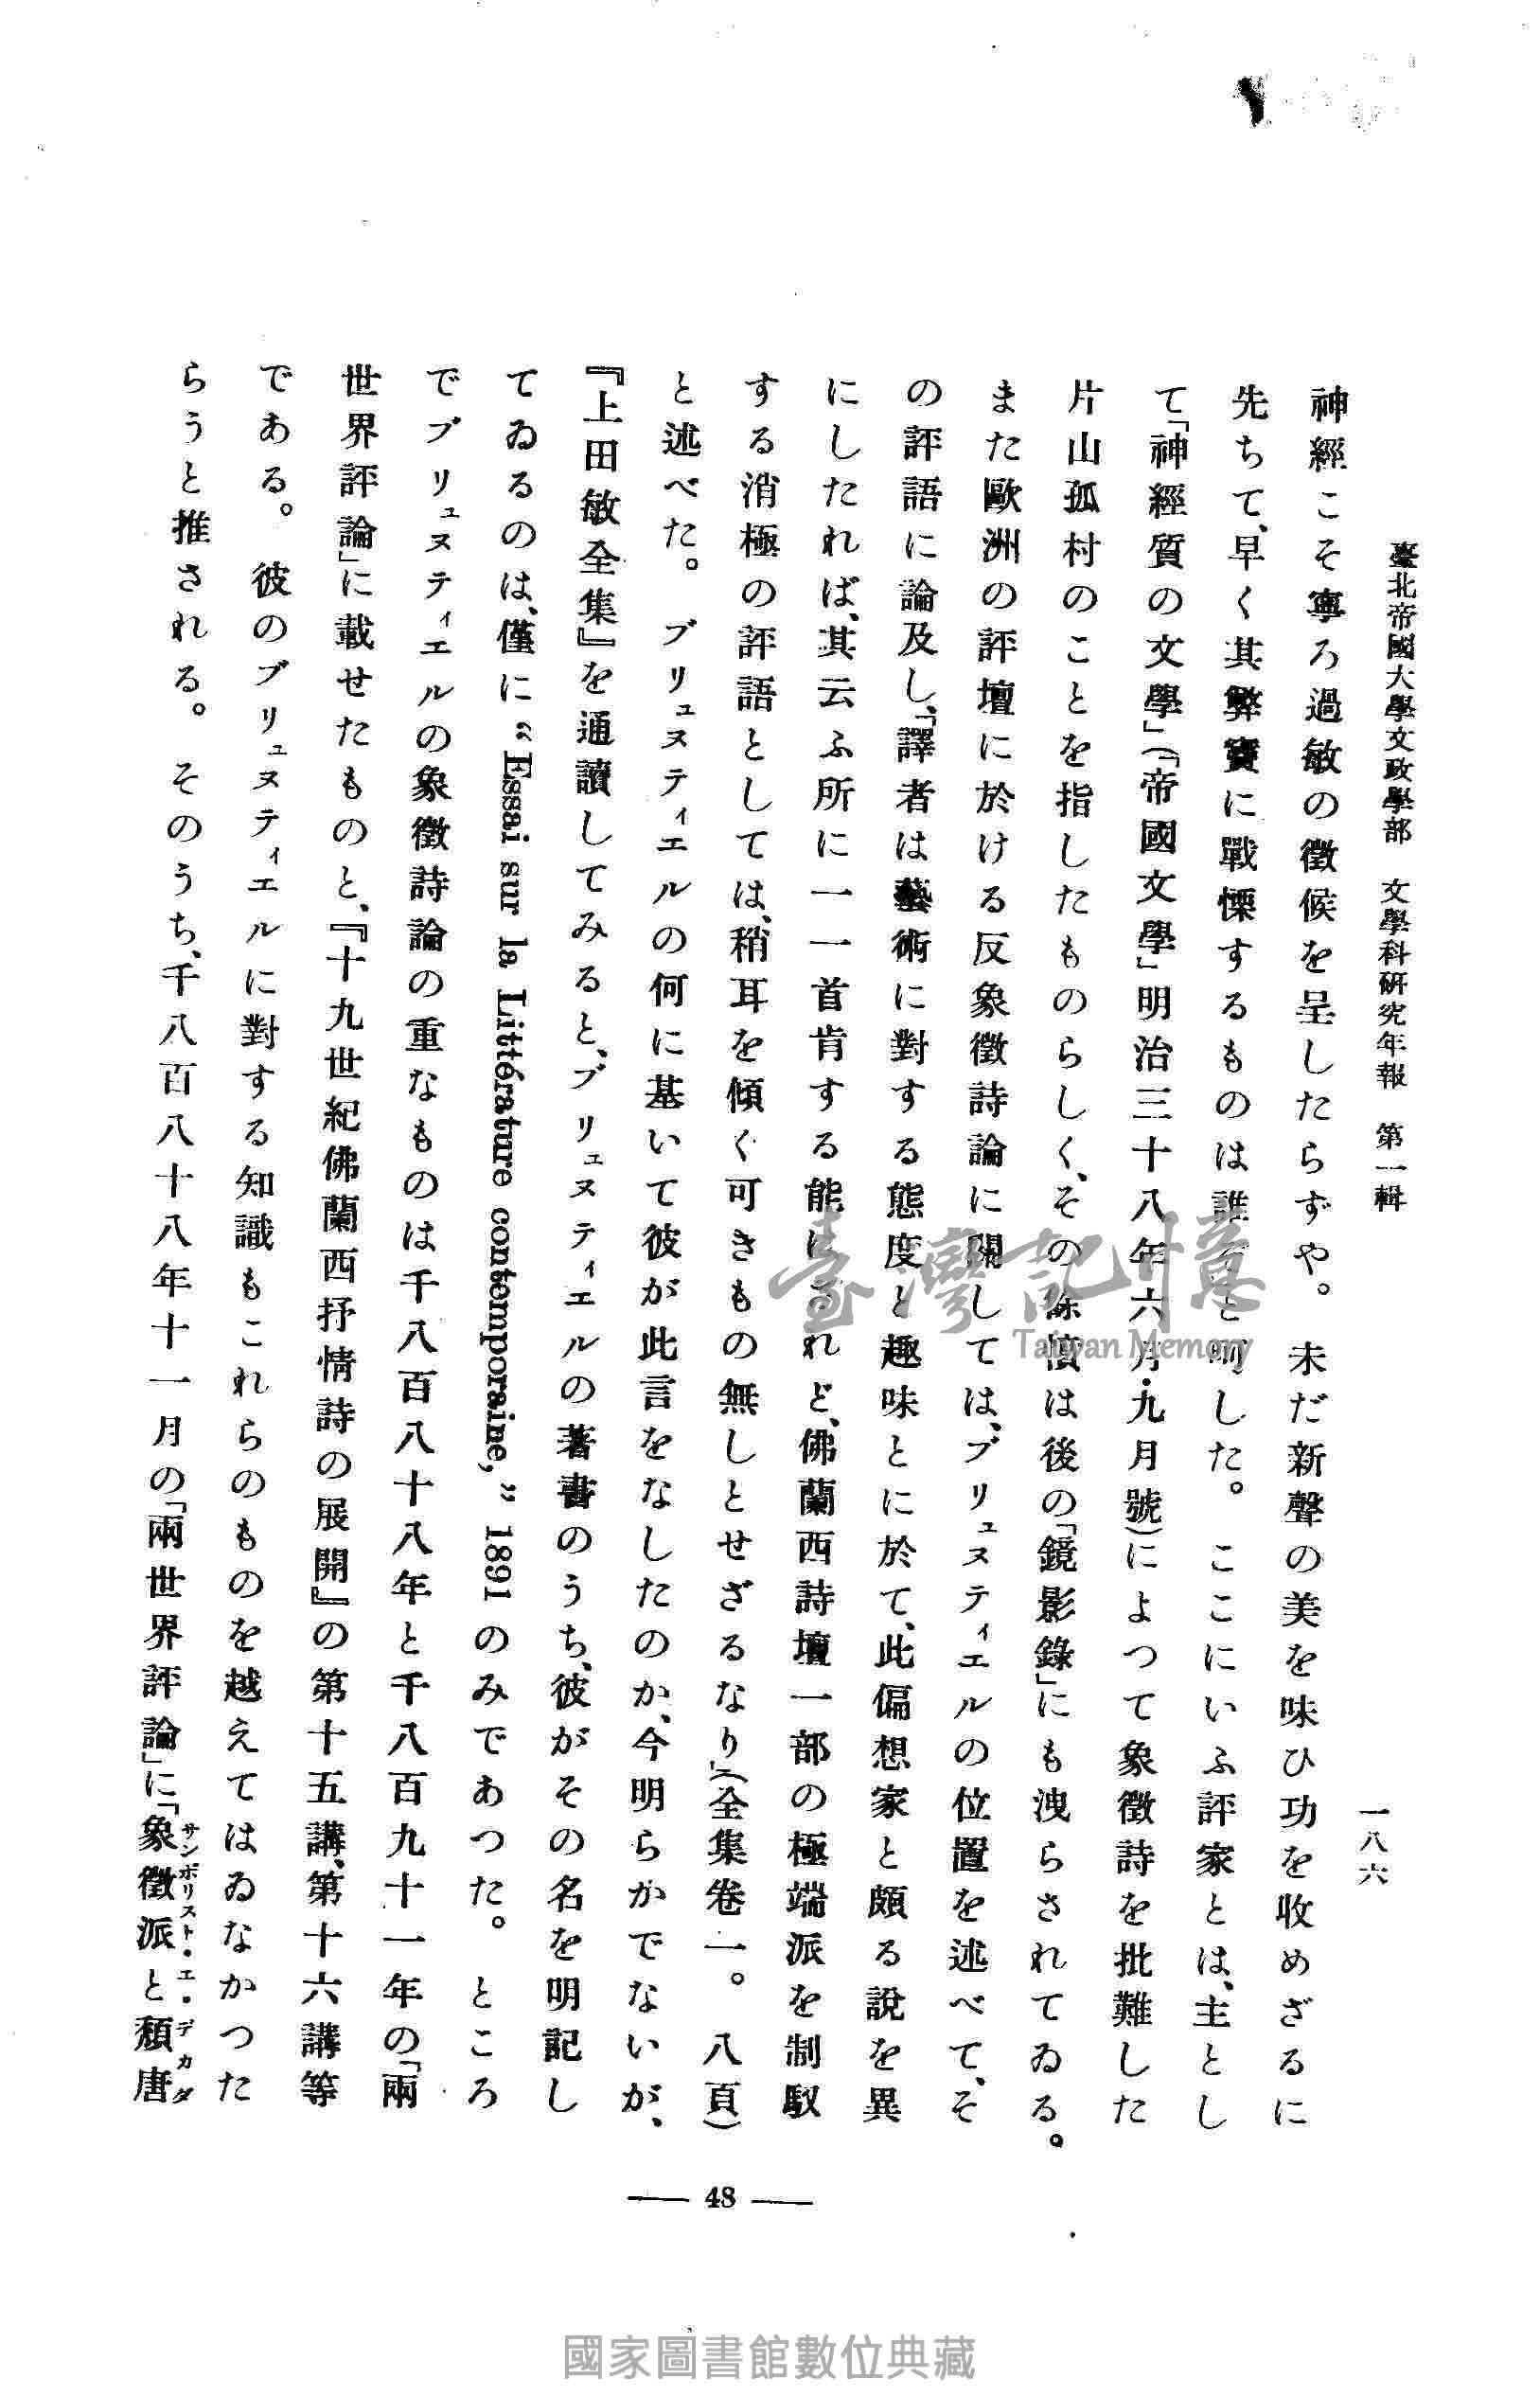 臺北帝國大學文政學部　文學科硏究年報　第一輯
一八六
神經こそ寧ろ過敏の徵候を呈したらずや。　未だ新聲の美を味ひ功を收めざるに
先ちて、早く其弊竇に戰慄するものは誰ぞと呵した。　ここにいふ評家とは、主とし
て「神經質の文學」（「帝國文學」明治三十八年六月・九月號）によつて象徵詩を批難した
片山孤村のことを指したものらしく、その餘憤は後の「鏡影錄」にも洩らされてゐる。
また歐洲の評壇に於ける反象徵詩論に關しては、ブリュヌティエルの位置を述べて、そ
の評語に論及し、「譯者は藝術に對する態度と趣味とに於て、此偏想家と頗る說を異
にしたれば、其云ふ所に一一首肯する能はざれど、佛蘭西詩壇一部の極端派を制馭
する消極の評語としては、稍耳を傾く可きもの無しとせざるなり」（全集卷一。　八頁）
と述べた。　ブリュヌティエルの何に基いて彼が此言をなしたのか、今明らかでないが、
『上田敏全集』を通讀してみると、ブリュヌティエルの著書のうち、彼がその名を明記し
てゐるのは、僅に “Essai sur la Littérature contemporaine,” 1891 のみであつた。　ところ
でブリュヌティエルの象徵詩論の重なものは千八百八十八年と千八百九十一年の「兩
世界評論」に載せたものと、『十九世紀佛蘭西抒情詩の展開』の第十五講、第十六講等
である。　彼のブリュヌティエルに對する知識もこれらのものを越えてはゐなかつた
らうと推される。　そのうち、千八百八十八年十一月の「兩世界評論」に「象徵派と頽唐
サンボリスト・エ・デカダ
— 48 —
臺灣記憶
Taiwan Memory
國家圖書館數位典藏